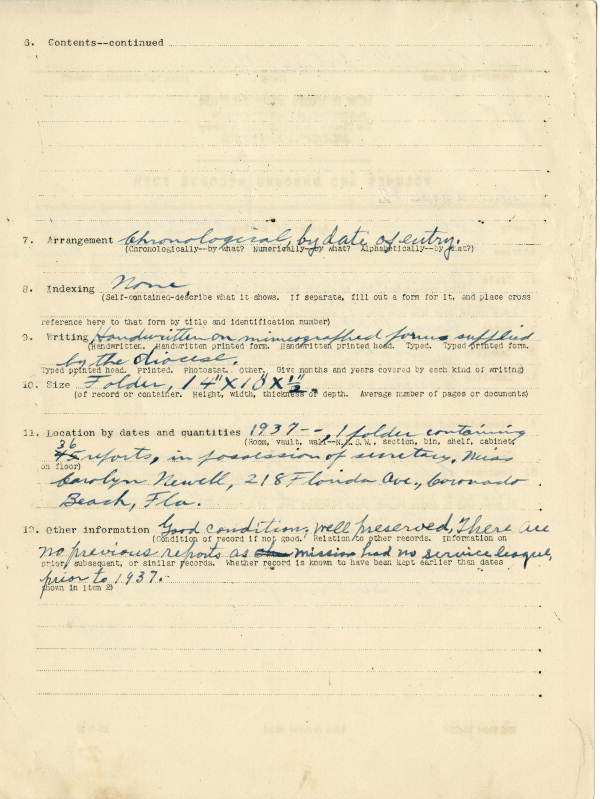 6. Contents--continued
7. Arrangement Chronological, by date of entry.
(Chronologically--by what? Numerically--by what? Alphabetically--by what?)
8. Indexing None
(Self-contained-describe what it shows. If separate, fill out a form for it, and place cross
reference here to that form by title and identification number)
9. Writing Handwritten on mimeographed forms supplied
(Handwritten. Handwritten printed form. Handwritten printed head. Typed. Typed printed form.
by the diocese.
Typed printed head. Printed. Photostat. Other. Give months and years covered by each kind of writing)
10. Size Folder, 14" X 10 X 1/2"
(of record or container. Height, width, thickness or depth. Average number of pages or documents)
11. Location by dates and quantities 1937--, 1 folder containing
(Room, vault, wall--N.E.S.W. section, bin, shelf, cabinet,
36
reports, in possession of secretary, Miss
on floor)
Carolyn Newell, 218 Florida Ave., Coronado
Beach, Fla.
12. Other information Good condition; well preserved, There are
(Condition of record if not good. Relation to other records. Information on
no previous reports as mission had no service league,
prior, subsequent, or similar records. Whether record is known to have been kept earlier than dates
prior to 1937.-
shown in item 2)